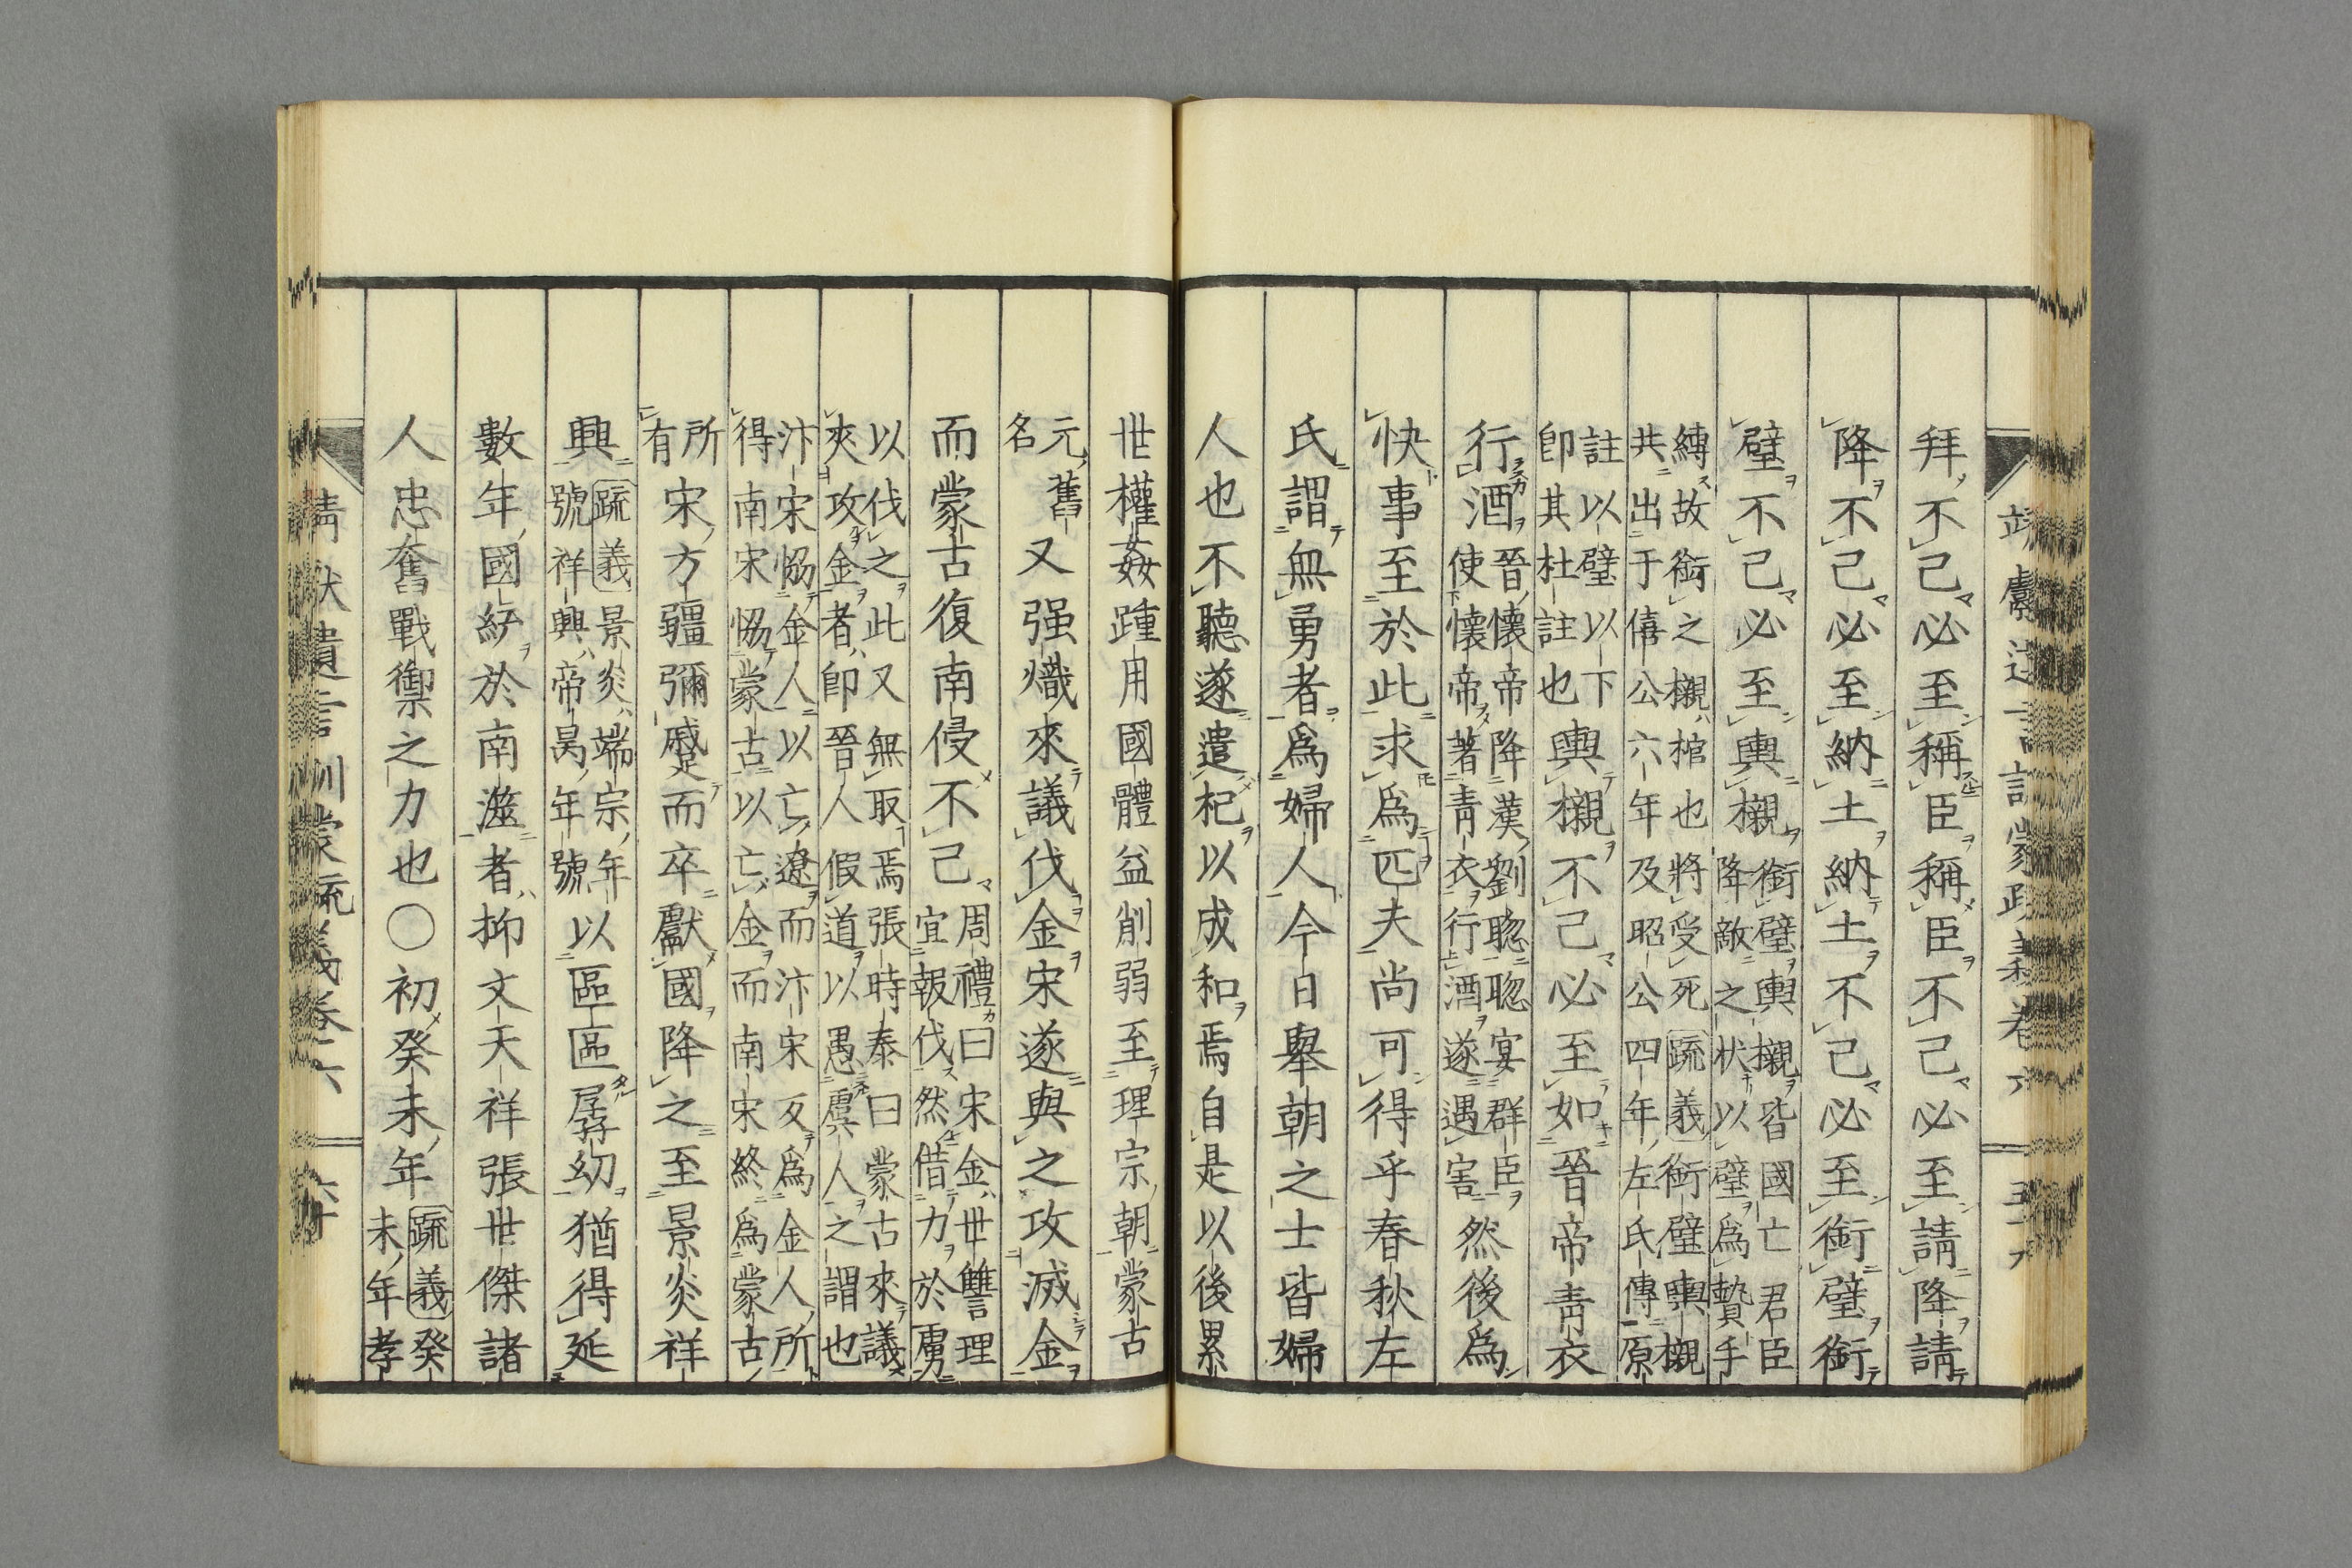 拜不已必至稱臣稱臣不已必至請降請
降不已必至納土納土不已必至銜璧銜
璧不已必至輿櫬
銜璧輿櫬皆國亡君臣
降敵之狀以璧爲贄手
縛故銜之櫬棺也將受死疏義銜璧輿櫬
共出于僖公六年及昭公四年左氏傳原
註以璧以下
卽其杜註也
輿櫬不已必至如晉帝青衣
行酒
晉懷帝降漢劉聰聰宴群臣
使懷帝著青衣行酒遂遇害
然後爲
快事至於此求爲匹夫尚可得乎春秋左
氏謂無勇者爲婦人今日舉朝之士皆婦
人也不聽遂遣杞以成和焉自是以後累
世權姦踵用國體益削弱至理宗朝蒙古
元舊
名
又强熾來議伐金宋遂與之攻滅金
而蒙古復南侵不已
周禮曰宋金世讐理
宜報伐然借力於虜
以伐之此又無取焉張時泰曰蒙古來議
夾攻金者卽晉人假道以愚虞人之謂也
汴宋恊金人以亡遼而汴宋反爲金人所
得南宋恊蒙古以亡金而南宋終爲蒙古
所
有
宋方疆彌蹙而卒獻國降之至景炎祥
興
疏義景炎端宗年
號祥興帝昺年號
以區區孱幼猶得延
數年國紓於南澨者抑文天祥張世傑諸
人忠奮戰禦之力也○初癸未年
疏義癸
未年孝
靖獻遺言訓蒙疏義卷六